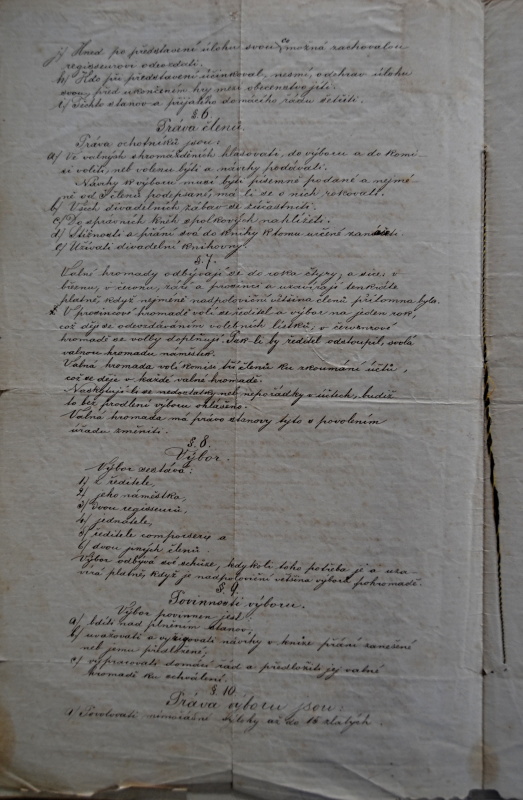 j) Hned po představení úlohu svou co možná zachovalou
regisseurovi odevzdati.
k) Kdo při představení účinkoval, nesmí, odehrav úlohu
svou, před ukončením hry mezi obecenstvo jíti.
l) Těchto stanov a přijatého domácího řádu šetřiti.
§. 6.
Práva členů.
Práva ochotníků jsou:
a) Ve valných shromážděních hlasovati, do výboru a do komi
sí voliti, neb volenu býti a návrhy podávati.
Návrhy k výboru musí býti písemně podané a nejmé
ně od 5 členů podpsané, má-li se o nich rokovati.
b) Všech divadelních zábav se súčastniti.
c) Do správních knih spolkových nahlížeti.
d) Stížnosti a přání svá do knihy k tomu určené zanésti.
e) Užívati divadelní knihovny.
§. 7.
Valné hromady odbývají se do roka čtyry, a sice: v
březnu, v červnu, září a prosinci a uzavírají tenkráte
platně, když nejméně nadpoloviční většina členů přítomna byla.
V prosincové hromadě volí se ředitel a výbor na jeden rok,
což děje se odevzdáváním volebních lístků; v červnové
hromadě se volby doplňují. Pak-li by ředitel odstoupil, svolá
valnou hromadu náměstek.
Valná hromada volí komisi tří členů ku zkoumání účtů,
což se děje v každé valné hromadě.
Naskytují-li se nedostatky neb nepořádky v účtech, budiž
to bez prodlení výboru ohlášeno.
Valná hromada má právo stanovy tyto s povolením
úřadu změniti.
§. 8.
Výbor.
Výbor sestává:
1) z ředitele,
2) jeho náměstka,
3) dvou regisseurů,
4) jednatele,
5) ředitele komparserie a
6) dvou jiných členů.
Výbor odbývá své schůze, kdykoli toho potřeba je a uza
vírá platně, když je nadpoloviční většina výboru pohromadě.
§. 9.
Povinnosti výboru.
Výbor povinnen jest:
a) bdíti nad plněním stanov,
b) uvažovati a vyřizovati návrhy v knize přání zanešené
neb jemu předložené,
c) vypracovati domácí řád a předložiti jej valné
hromadě ku schválení.
§. 10.
Práva výboru jsou:
a) Povolovati mimořádné výlohy až do 15 zlatých.